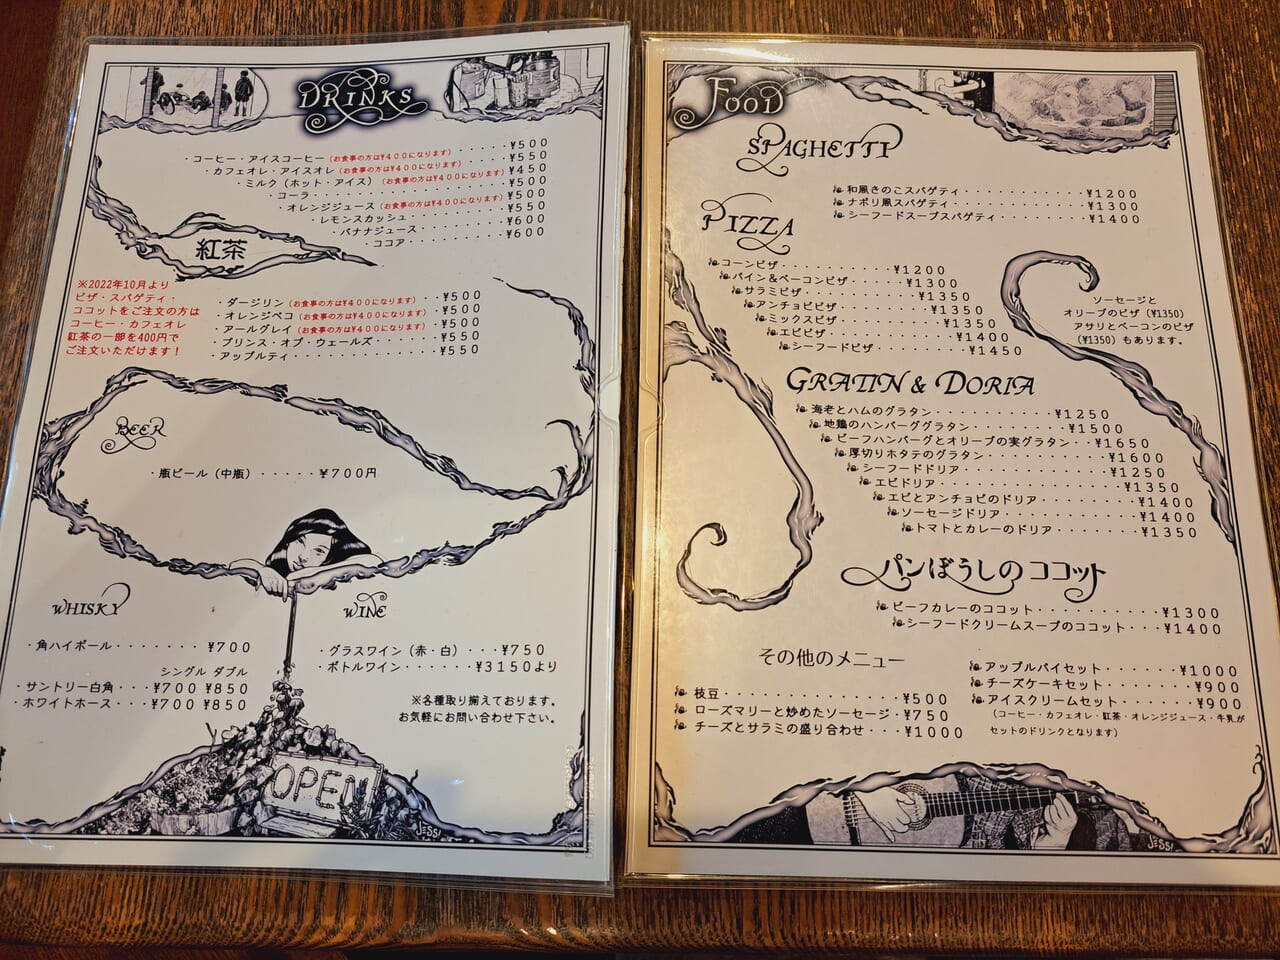 DRINKS
・コーヒー・アイスコーヒー(お食事の方は¥400になります)・・・・・¥500
・カフェオレ・アイスオレ(お食事の方は¥400になります)・・・・・¥550
・ミルク(ホット・アイス)(お食事の方は¥400になります)・・¥450
・コーラ・・・・・・・・・・・・・・・・¥500
・オレンジジュース(お食事の方は¥400になります)・¥500
・レモンスカッシュ・・・・・・・・・¥550
・バナナジュース・・・・・・・・¥600
・ココア・・・・・・・・・・¥600
紅茶
※2022年10月より
ピザ・スパゲティ・
ココットをご注文の方は
コーヒー・カフェオレ
紅茶の一部を400円で
ご注文いただけます!
・ダージリン(お食事の方は¥400になります)・・¥500
・オレンジペコ(お食事の方は¥400になります)・・¥500
・アールグレイ(お食事の方は¥400になります)・・¥500
・プリンス・オブ・ウェールズ・・・・・¥550
・アップルティ・・・・・・・・・・・・¥550
BEER
・瓶ビール(中瓶)・・・・・¥700円
WHISKY
・角ハイボール・・・・・・・¥700
シングル ダブル
・サントリー白角・・・¥700 ¥850
・ホワイトホース・・・¥700 ¥850
WINE
・グラスワイン(赤・白)・・・¥750
・ボトルワイン・・・・・・¥3150より
※各種取り揃えております。
お気軽にお問い合わせ下さい。
OPEN
JESSI
FOOD
SPAGHETTI
和風きのこスパゲティ・・・・・・・・・・¥1200
ナポリ風スパゲティ・・・・・・・・・・・¥1300
シーフードスープスパゲティ・・・・・・・¥1400
PIZZA
コーンピザ・・・・・・・・・・¥1200
パイン&ベーコンピザ・・・・・¥1300
サラミピザ・・・・・・・・・・¥1350
アンチョビピザ・・・・・・・・¥1350
ミックスピザ・・・・・・・・・¥1350
エビピザ・・・・・・・・・・・¥1400
シーフードピザ・・・・・・・・¥1450
ソーセージと
オリーブのピザ(¥1350)
アサリとベーコンのピザ
(¥1350)もあります。
GRATIN & DORIA
海老とハムのグラタン・・・・・・・・・・¥1250
地鶏のハンバーググラタン・・・・・・・・¥1500
ビーフハンバーグとオリーブの実グラタン・・¥1650
厚切りホタテのグラタン・・・・・・・・・¥1600
シーフードドリア・・・・・・・・・・・・¥1250
エビドリア・・・・・・・・・・・・・・・¥1350
エビとアンチョビのドリア・・・・・・・・¥1400
ソーセージドリア・・・・・・・・・・・・¥1400
トマトとカレーのドリア・・・・・・・・・¥1350
パンぼうしのココット
ビーフカレーのココット・・・・・・・・・・¥1300
シーフードクリームスープのココット・・・¥1400
その他のメニュー
枝豆・・・・・・・・・・・・・・¥500
ローズマリーと炒めたソーセージ・¥750
チーズとサラミの盛り合わせ・・・¥1000
アップルパイセット・・・・・・¥1000
チーズケーキセット・・・・・・・¥900
アイスクリームセット・・・・・・¥900
(コーヒー・カフェオレ・紅茶・オレンジジュース・牛乳が
セットのドリンクとなります)
JESSI